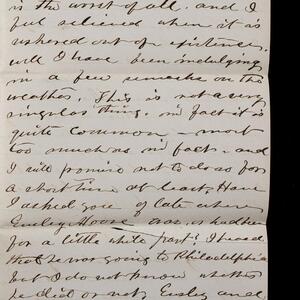 is the worst of all. and I
feel relieved when it is
ushered out of existence.
well I have been indulging
in a few remarks on the
weather. This is not a very
singular thing. in fact it is
quite common — most
too much so in fact. and
I will promise not to do so for
a short time at least. Have
I asked you of late where
Moore was, or had been
for a little while past? I heard
that he was going to Philadelphia
but I do not know whether
he did or not,